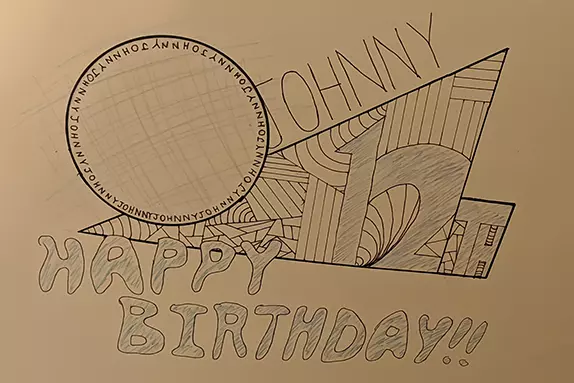 JOHNNY
JOHNNY JOHNNY JOHNNY JOHNNY JOHNNY JOHNNY JOHNNY JOHNNY JOHNNY
12
HAPPY
BIRTHDAY!!